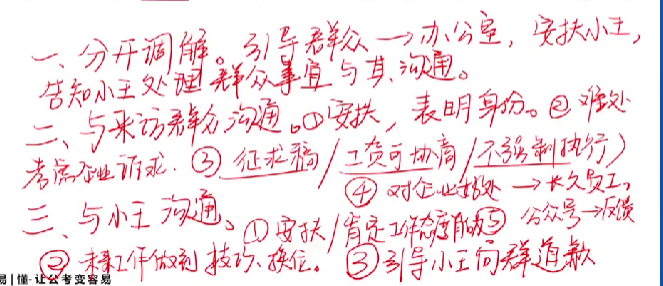 一、分开调解。引导群众→办公室，安抚小王，
告知小王处理群众事宜与其沟通。
二、与来访群众沟通。①安抚，表明身份。②难处
考虑企业诉求.③征求稿/工资可协商/不强制执行）
④对企业好处→长久员工。
三、与小王沟通。①安抚/肯定工作态度 ⑤公众号→反馈
②未来工作做到技巧、换位。③引导小王向群道歉
易|懂-让公考变容易